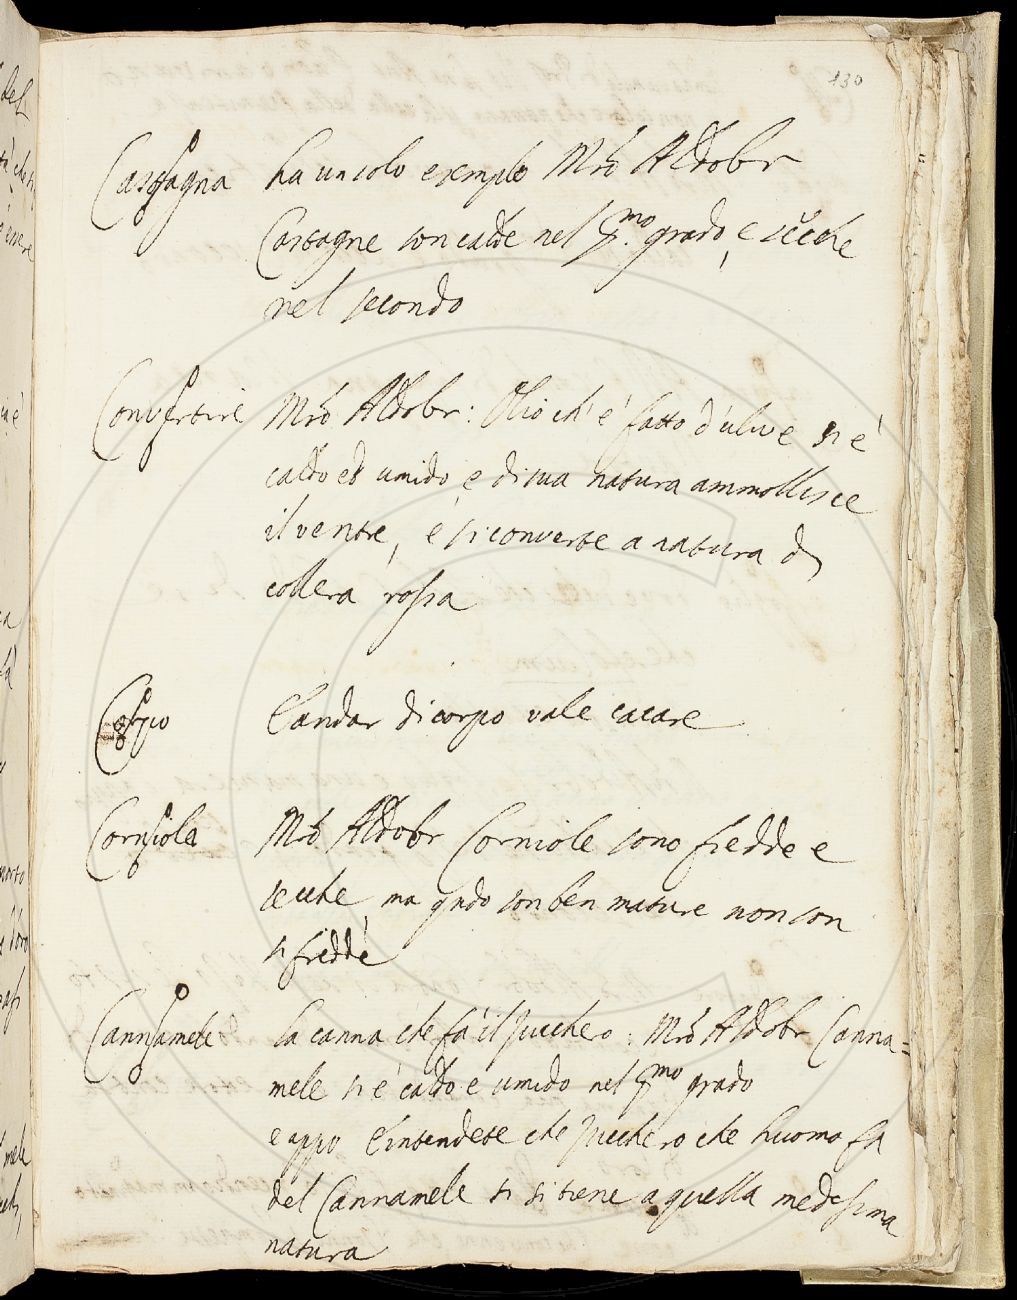 130
Castagna ha un solo exemplo Mro Aldobr
Castagne son calde nel pmo. grado, e secche
nel secondo
Convertire Mro Aldobr: Olio ch'è fatto d'ulive si è
caldo ed umido, e di sua natura ammollisce
il ventre, e si converte a natura di
collera rossa
Corpo l'andar di corpo vale cacare
Corniola Mro Aldobr Corniole sono fredde e
secche, ma qndo son ben mature non son
si fredde
Cannamele la canna che fa il zucchero. Mro Aldobr Canna=
mele si è caldo e umido nel pmo grado
e appo l'intendete che zucchero che huomo fa
del Cannamele si si tiene a quella medesima
natura